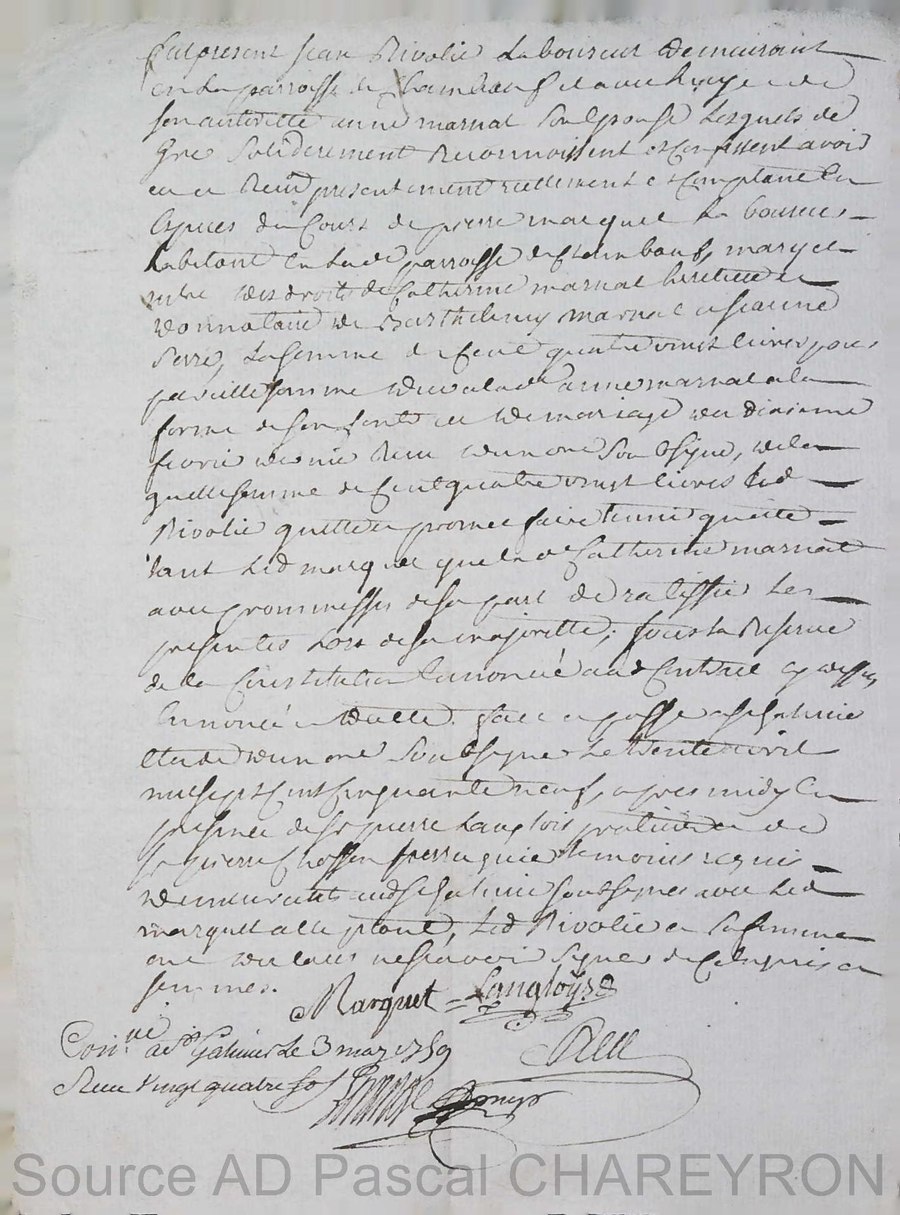 fut present Jean Rivolie Laboureur demeurant
en La parroisse de Chambeuf et avec Luy et de
son autorité anne marnat Son Epouse Lesquels de
Gré Soliderement Reconnoissent et Confessent avoir
eu et Reçu presentement reellement et Comptant En
Especes du Cours de pierre marquet La boureur
habitant En Lad parroisse de Chambeuf, mary et
mtre des droits de Catherine marnat heritiere et
donnataire de Barthelemy marnat et Jeanne
Serre, La somme de Cent quatre vingt Livres pour
pareille somme deue a lad anne marnat a la
forme de son Contract de mariage du dixieme
fevrier dernier Reçu du nore Soubsigné, de la
quelle somme de Cent quatre vingt Livres Led
Rivolie quitte et promet faire tenir quitte
tant Led marquet que lad Catherine marnat
avec prommesses de sa part de ratiffier Les
presentes Lors de sa majorité, sous la Reserve
de la Constitution Ennoncée aud Contract cy dessus
Ennoncé et datte. fait et passé a St Galmier
Etude du nore Soubsigné Le trente avril
mil sept Cent Cinquante neuf, apres midy En
presence de Sr pierre Langlois praticien et de
Sr pierre Chossen temoins requis
demeurants aud St Galmier soubsignés avec Led
marquet Led Rivolie et Sa femme
ont declaré ne Scavoir Signer de Ce Enquis et
sommés.
Marquet = Langloys
Con.lle a St Galmier Le 3 may 1759
Reçu Vingt quatre sols